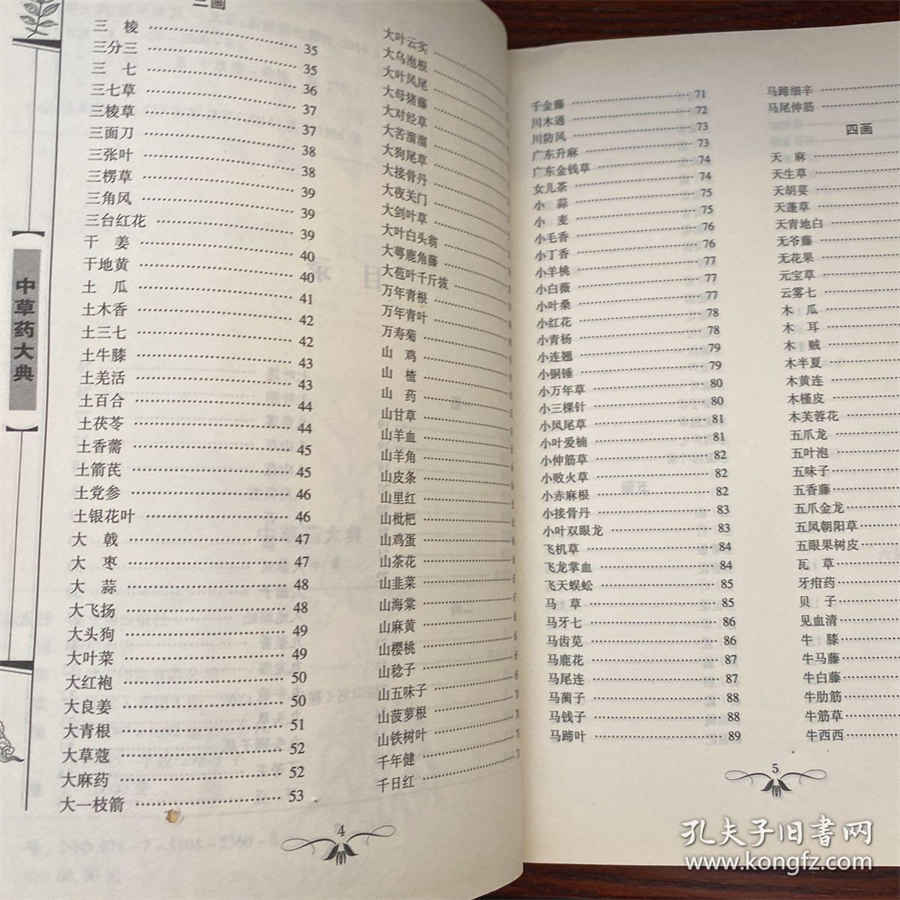 三画
三 棱 35
三分三 35
三 七 36
三七草 37
三棱草 37
三面刀 38
三张叶 38
三楞草 39
三角风 39
三台红花 39
干 姜 40
干地黄 40
土 瓜 41
土木香 42
土三七 42
土牛膝 43
土羌活 43
土百合 44
土茯苓 44
土香薷 45
土箭芪 45
土党参 46
土银花叶 46
大 戟 47
大 枣 47
大 蒜 48
大飞扬 48
大头狗 49
大叶菜 49
大红袍 50
大良姜 50
大青根 51
大草蔻 52
大麻药 52
大一枝箭 53
大叶云实
大乌泡根
大叶凤尾
大母猪藤
大对经草
大苦溜溜
大狗尾草
大接骨丹
大夜关门
大剑叶草
大叶白头翁
大萼鹿角藤
大苞叶千斤拔
万年青根
万年青叶
万寿菊
山 鸡
山 楂
山 药
山甘草
山羊血
山羊角
山皮条
山里红
山枇杷
山鸡蛋
山茶花
山韭菜
山海棠
山麻黄
山樱桃
山稔子
山五味子
山菠萝根
山铁树叶
千年健
千日红
中草药大典
4
千金藤 71
川木通 72
川防风 73
广东升麻 73
广东金钱草 74
女儿茶 74
小 蒜 75
小 麦 75
小毛香 76
小丁香 76
小羊桃 77
小白薇 77
小叶桑 78
小红花 78
小青杨 79
小连翘 79
小铜锤 80
小万年草 80
小三棵针 81
小凤尾草 81
小叶爱楠 82
小伸筋草 82
小败火草 82
小赤麻根 83
小接骨丹 83
小叶双眼龙 84
飞机草 84
飞龙掌血 85
飞天蜈蚣 85
马 草 86
马牙七 86
马齿苋 87
马鹿花 87
马尾连 88
马蔺子 88
马钱子 89
马蹄叶
马蹄细辛
马尾伸筋
四画
天 麻
天生草
天胡荽
天蓬草
天青地白
无爷藤
无花果
元宝草
云雾七
木 瓜
木 耳
木 贼
木半夏
木黄连
木槿皮
木芙蓉花
五爪龙
五叶泡
五味子
五香藤
五爪金龙
五凤朝阳草
五眼果树皮
瓦 草
牙疳药
贝 子
见血清
牛 膝
牛马藤
牛白藤
牛肋筋
牛筋草
牛西西
5
孔夫子旧书网
www.kongfz.com